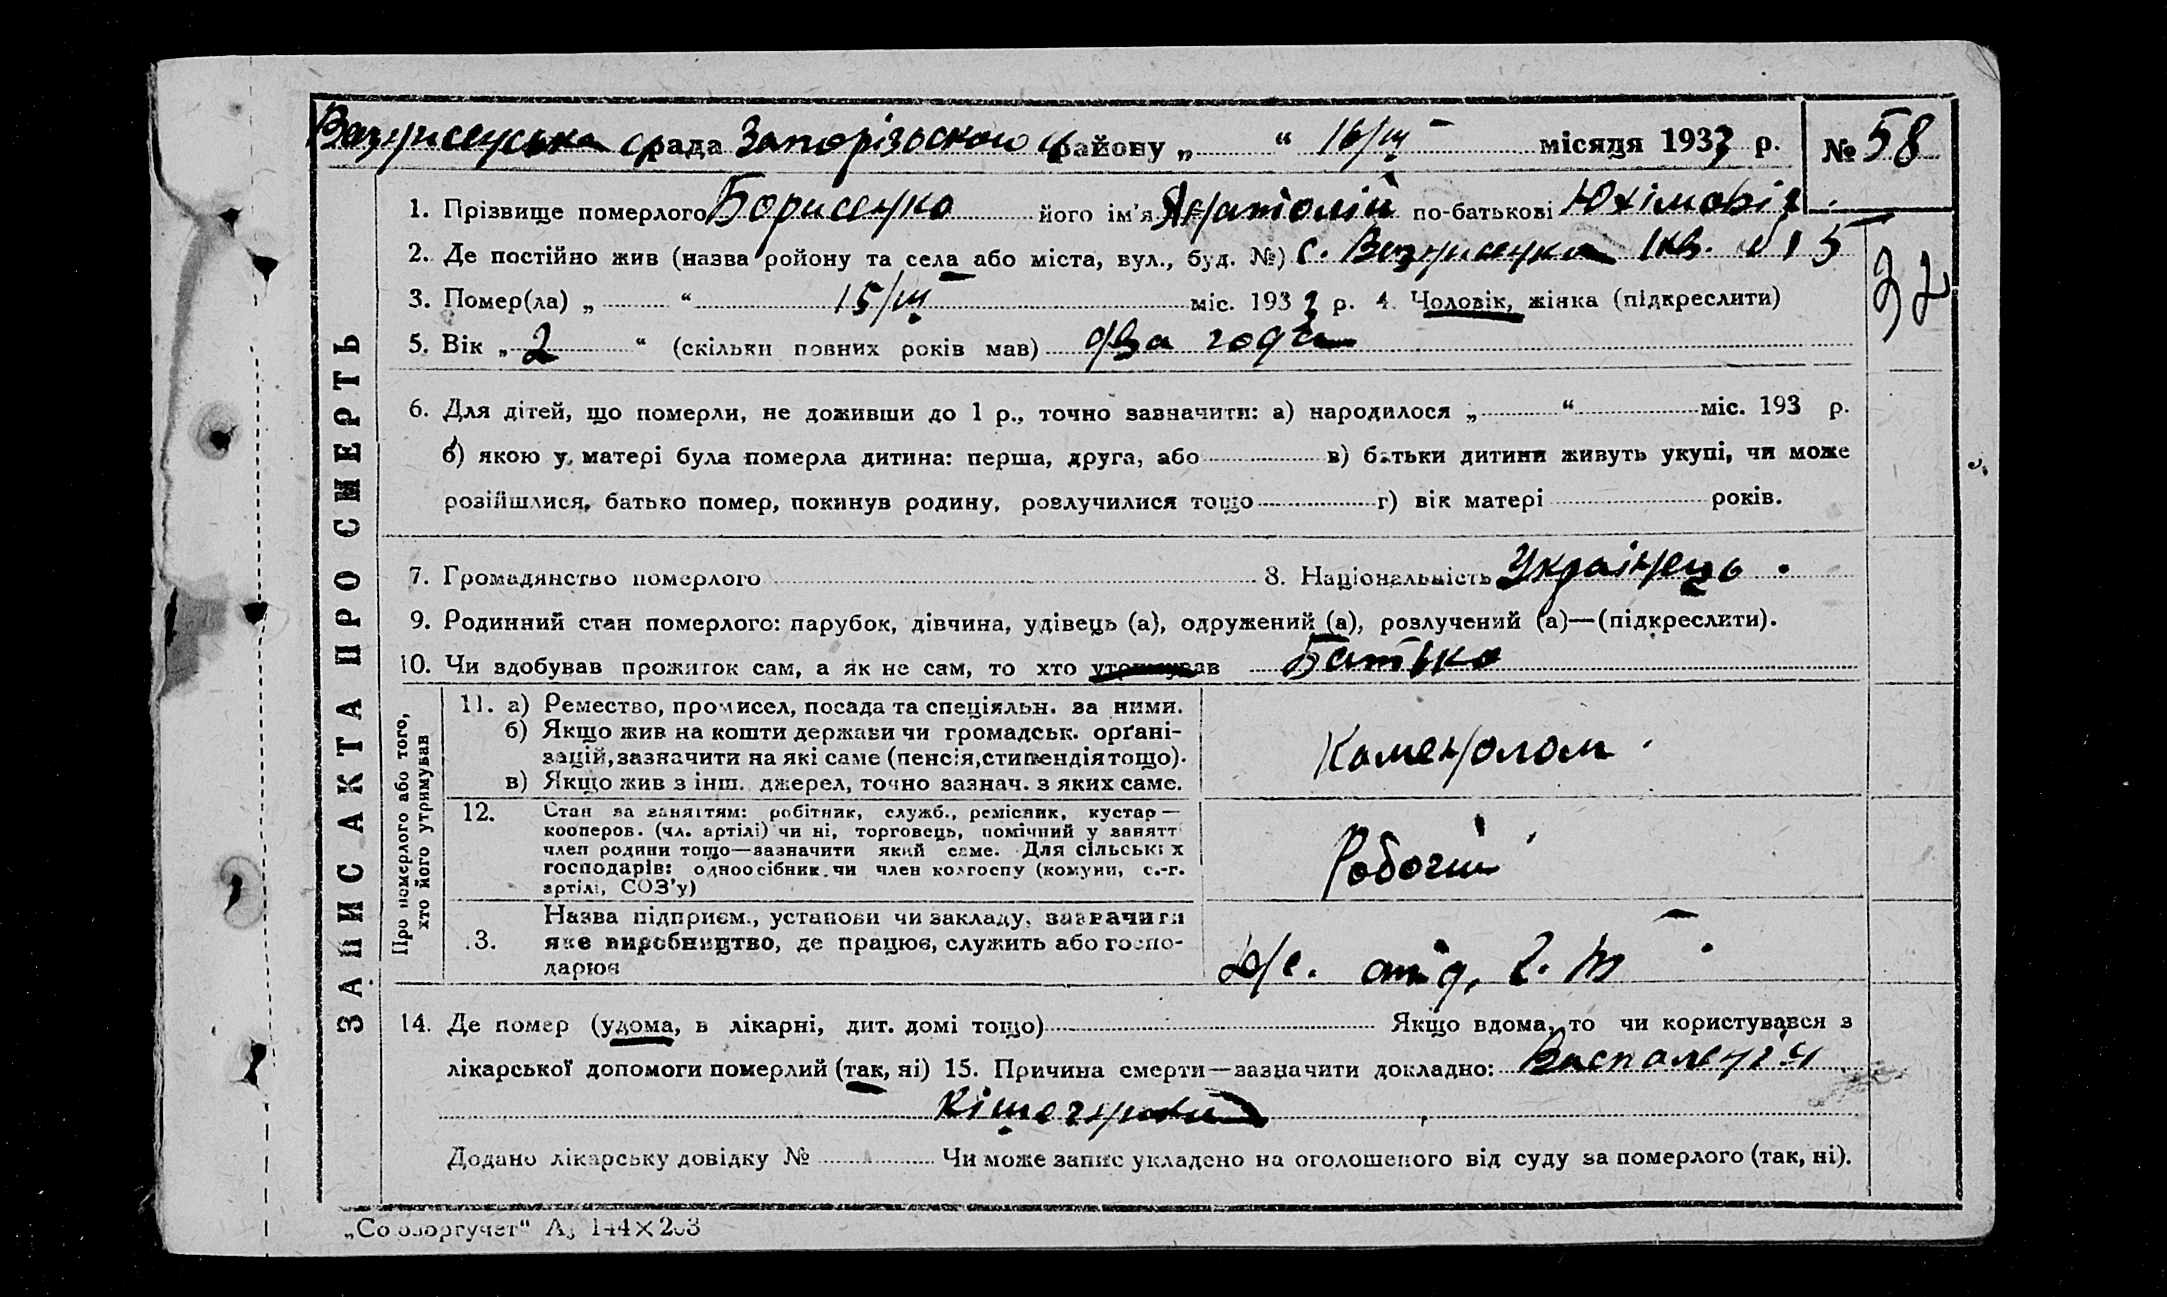 Вознесенська с/рада Запорізьского району „ “ 16/III місяця 1933 р. № 58
1. Прізвище померлого Борисенко його ім'я Анатолій по-батькові Юхімовіч
2. Де постійно жив (назва ройону та села або міста, вул., буд. №) с. Вознесенка 1 кв. № 15
32
3. Помер(ла) „ “ 15/III міс. 1933 р. 4. Чоловік, жінка (підкреслити)
5. Вік „ 2 “ (скільки повних років мав) два года
6. Для дітей, що померли, не доживши до 1 р., точно зазначити: а) народилося „ “ міс. 193 р.
б) якою у матері була померла дитина: перша, друга, або в) батьки дитини живуть укупі, чи може
розійшлися, батько помер, покинув родину, розлучилися тощо г) вік матері років.
7. Громадянство померлого 8. Національність Українець.
9. Родинний стан померлого: парубок, дівчина, удівець (а), одружений (а), розлучений (а)—(підкреслити).
10. Чи здобував прожиток сам, а як не сам, то хто утримував Батько
ЗАПИС АКТА ПРО СМЕРТЬ
Про померлого або того,
хто його утримував
11. а) Ремество, промисел, посада та спеціяльн. за ними.
б) Якщо жив на кошти держави чи громадськ. орґані-
зацій, зазначити на які саме (пенсія, стипендія тощо).
в) Якщо жив з інш. джерел, точно зазнач. з яких саме.
Каменолом.
12. Стан за заняттям: робітник, служб., ремісник, кустар—
кооперов. (чл. артілі) чи ні, торговець, помічний у занятт
член родини тощо—зазначити який саме. Для сільських
господарів: одноосібник чи член колгоспу (комуни, с.-г.
артілі, СОЗ'у)
Робочий
.3. Назва підприєм., установи чи закладу, зазначити
яке виробництво, де працює, служить або госпо-
дарює
14. Де помер (удома, в лікарні, дит. домі тощо) Якщо вдома, то чи користувався з
лікарської допомоги померлий (так, ні) 15. Причина смерти—зазначити докладно:
Додано лікарську довідку № Чи може запис укладено на оголошеного від суду за померлого (так, ні).
„Союзоргучет“ А₅ 144×203